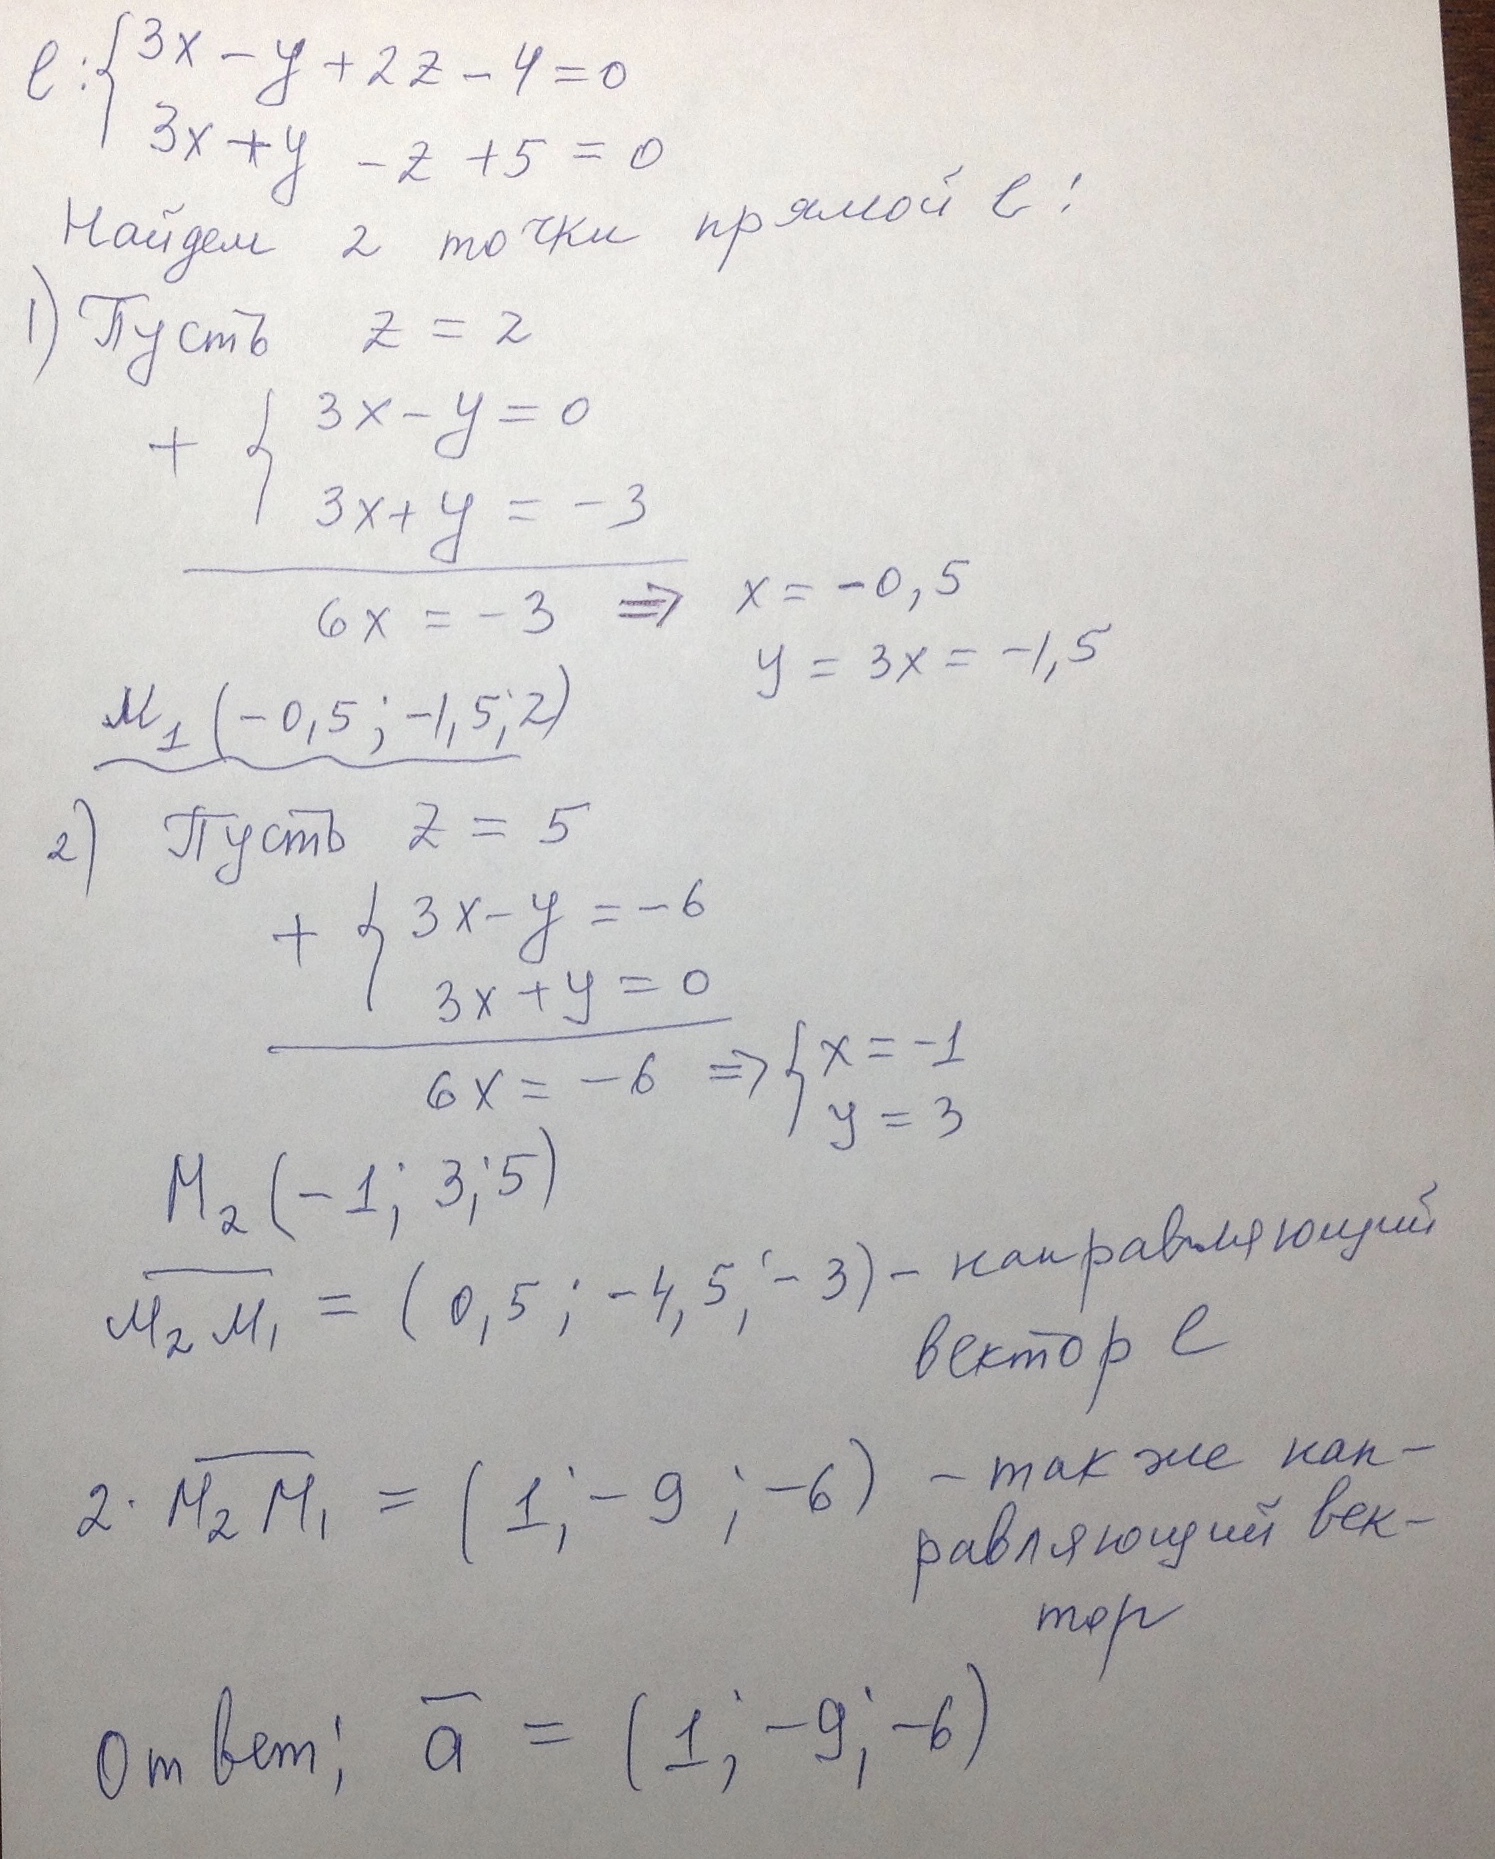 l: { 3x - y + 2z - 4 = 0
3x + y - z + 5 = 0
Найдем 2 точки прямой l:
1) Пусть z = 2
+ { 3x - y = 0
3x + y = -3
6x = -3 ⇒ x = -0,5
y = 3x = -1,5
M₁ (-0,5; -1,5; 2)
2) Пусть z = 5
+ { 3x - y = -6
3x + y = 0
6x = -6 ⇒ { x = -1
y = 3
M₂ (-1; 3; 5)
M₂M₁ = (0,5; -4,5; -3) - направляющий
вектор l
2 · M₂M₁ = (1; -9; -6) - также нап-
равляющий век-
тор
Ответ: a = (1; -9; -6)